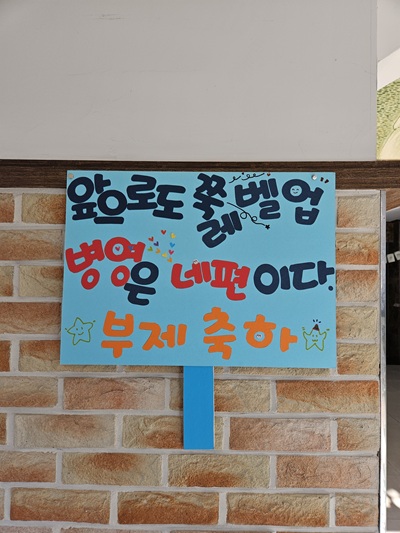 앞으로도 쭉 레벨업
병영은 네편이다.
부제 축하